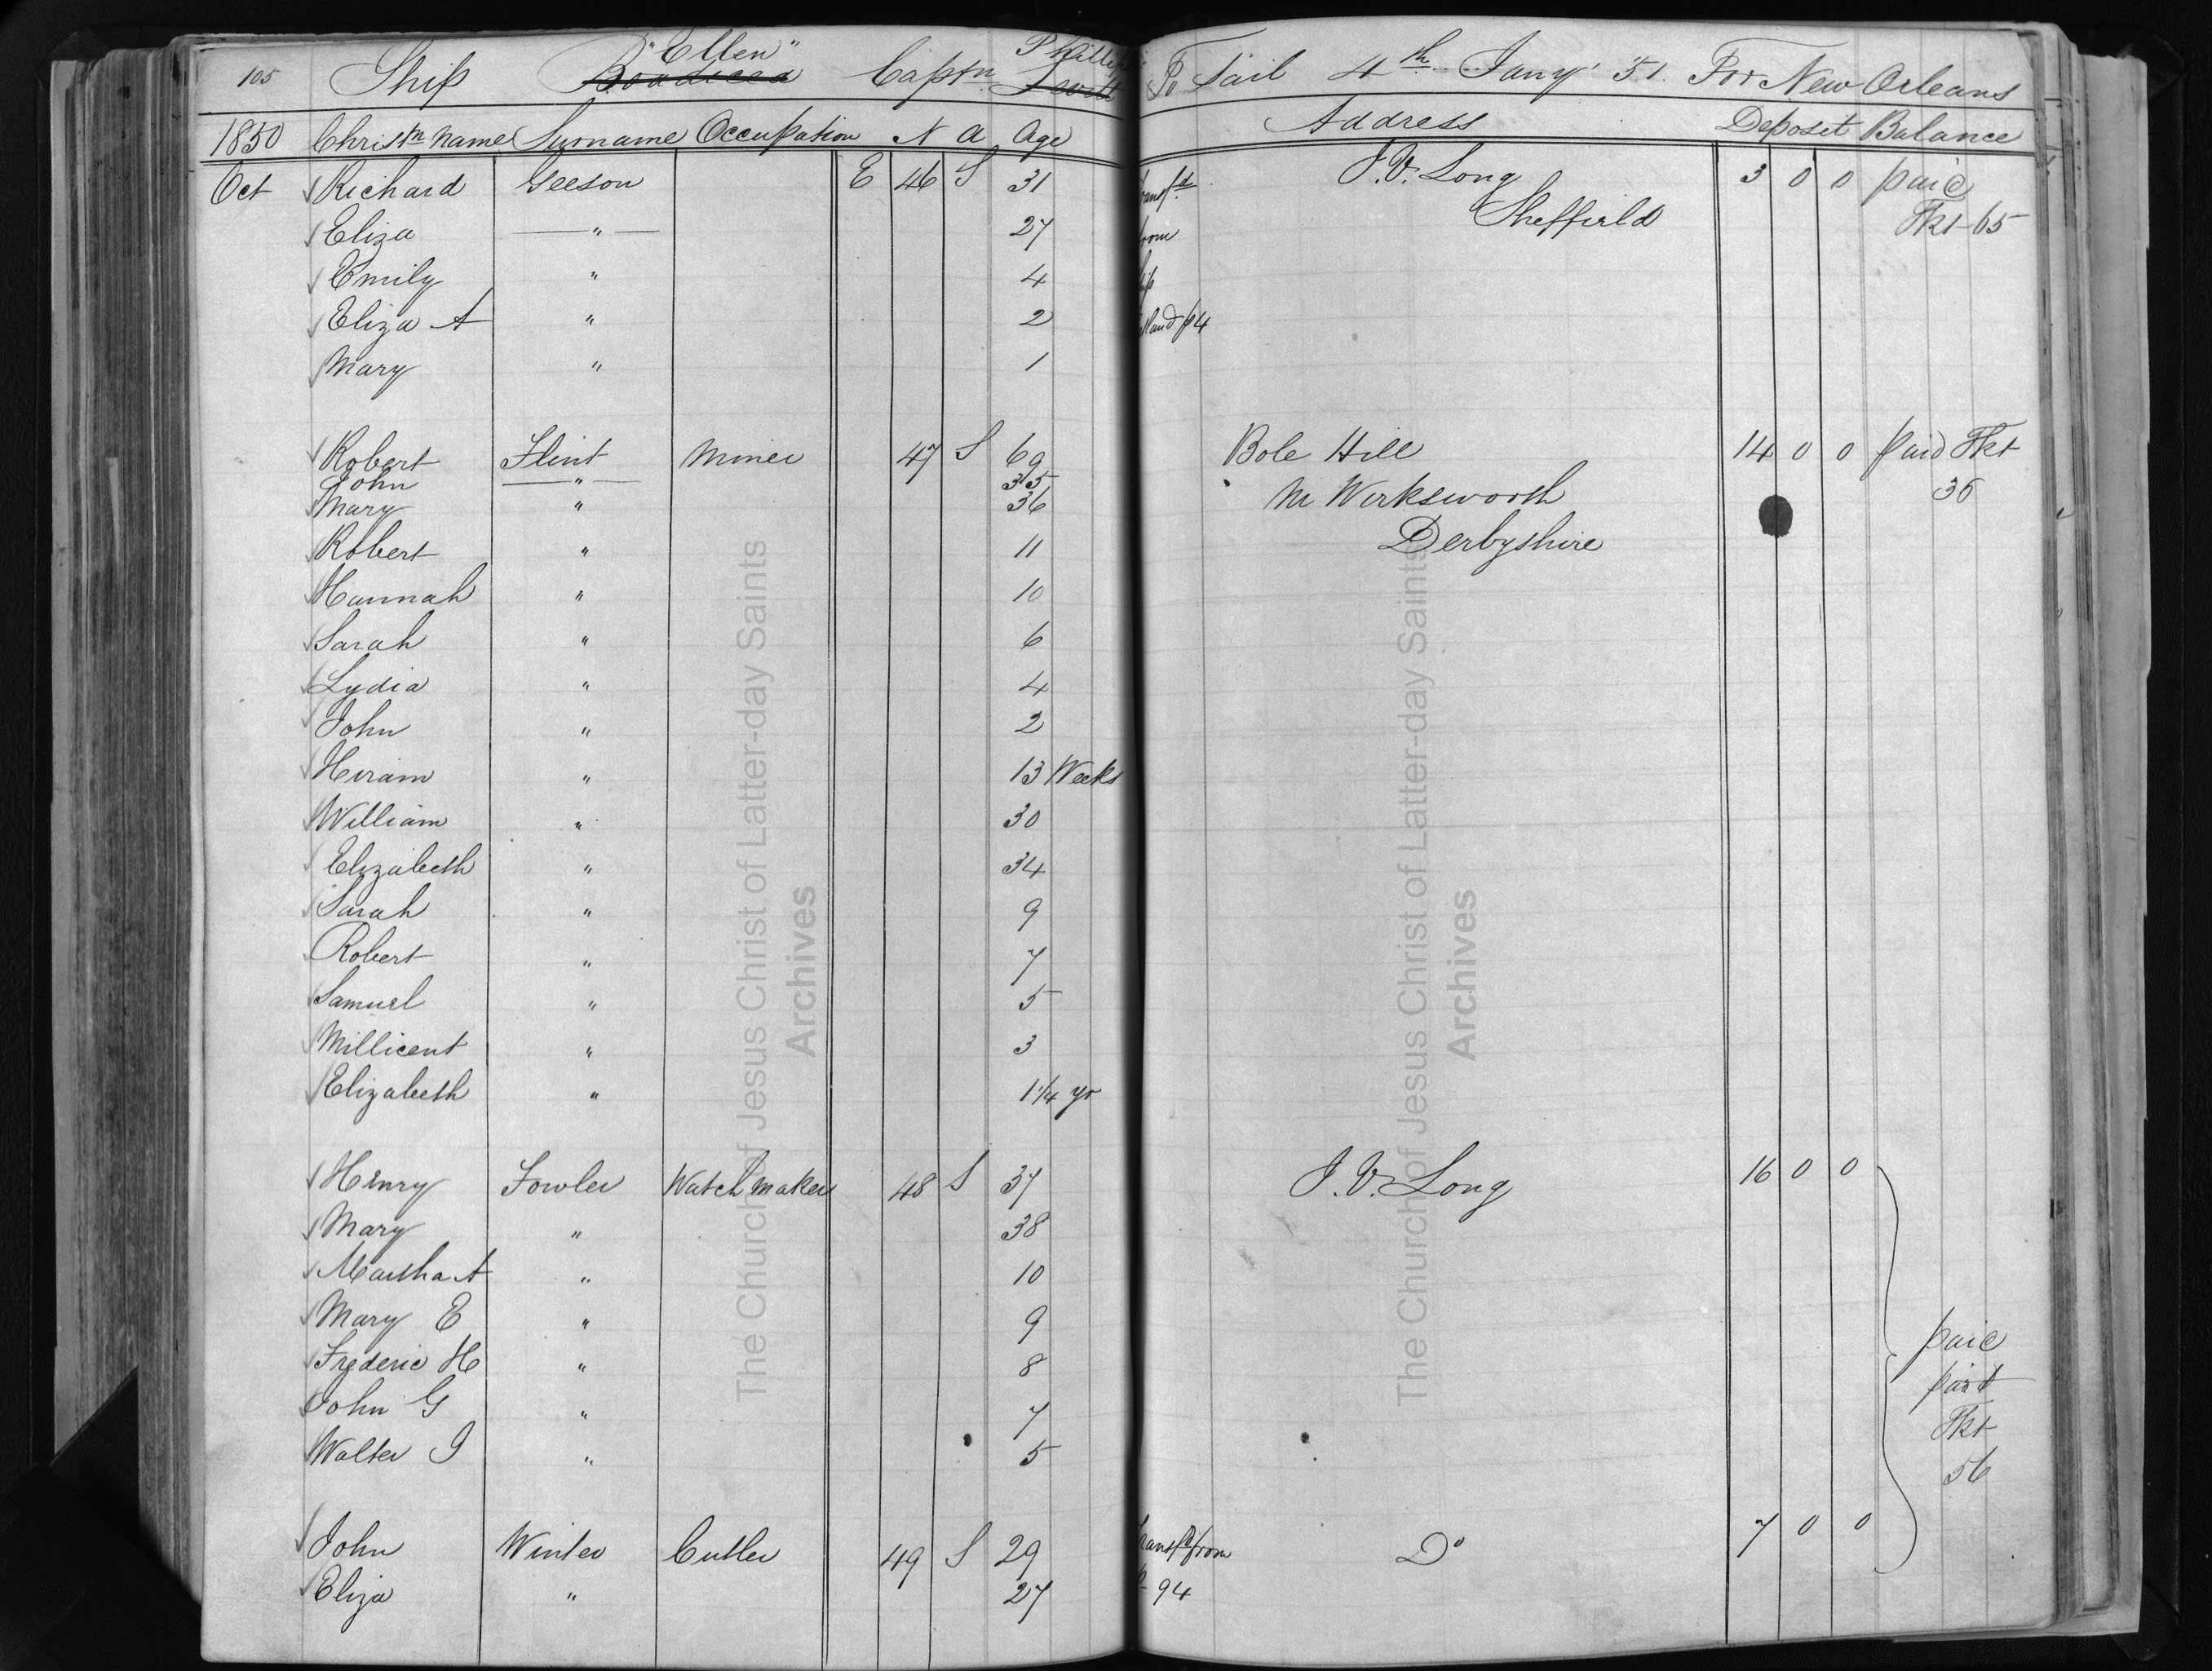 105 Ship "Ellen" Boadicea Captn Phillips To Sail 4th Jany 51. For New Orleans
1850 Christn name Surname Occupation N A Age Address Deposit Balance
Oct Richard Gleeson E 46 S 31 J.V. Long 3 0 0 paid
Eliza —"— 27 from Sheffield Tkt 65
Emily " 4
Eliza A " 2 p4
Mary " 1
Robert Flint Miner 47 S 69 Bole Hill 14 0 0 paid Tkt
John —"— 35 36
Mary " 36 Nr Wirksworth
Robert " 11 Derbyshire
Hannah " 10
Sarah " 6
Lydia " 4
John " 2
Hiram " 13 Weeks
William " 30
Elizabeth " 34
Sarah " 9
Robert " 7
Samuel " 5
Millicent " 3
Elizabeth " 1 1/4 yr
Henry Fowler Watch maker 48 S 37 J.V. Long 16 0 0
Mary " 38
Martha A " 10
Mary E " 9 paid
Frederic H " 8 part
John G " 7 Tkt
Walter I " 5 56
John Winter Cutler 49 S 29 transfd from Do 7 0 0
Eliza " 27 94
The Church of Jesus Christ of Latter-day Saints
Archives
The Church of Jesus Christ of Latter-day Saints
Archives